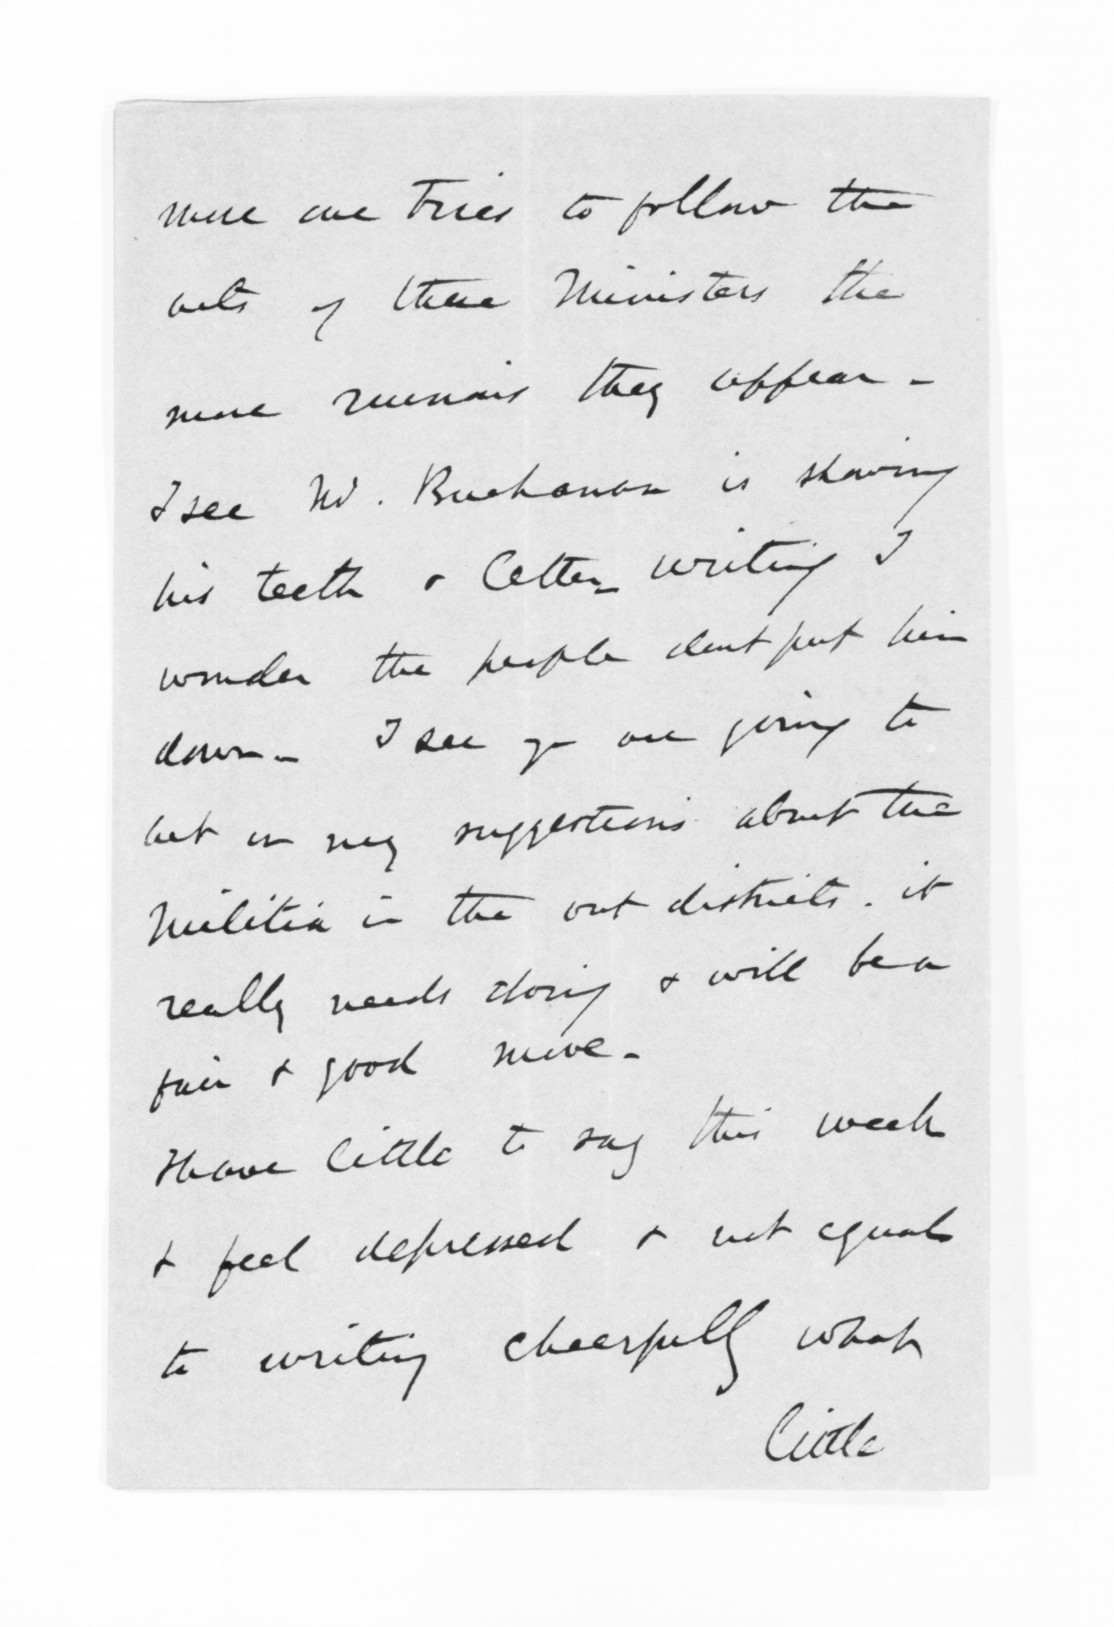 more one tries to follow the
acts of these Ministers the
more ruinous they appear -
I see W. Buchanan is showing
his teeth & letter-writing I
wonder the people dont put him
down - I see you are going to
act on my suggestions about the
Militia in the out districts. it
really needs doing & will be a
fair & good move -
I have little to say this week
& feel depressed & not equal
to writing cheerfully what
little